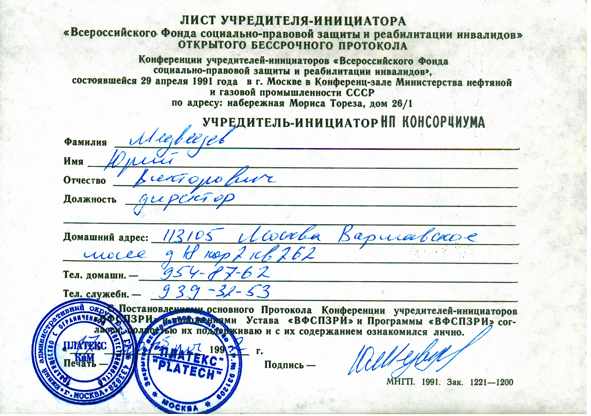 ЛИСТ УЧРЕДИТЕЛЯ-ИНИЦИАТОРА
«Всероссийского Фонда социально-правовой защиты и реабилитации инвалидов»
ОТКРЫТОГО БЕССРОЧНОГО ПРОТОКОЛА
Конференции учредителей-инициаторов «Всероссийского Фонда
социально-правовой защиты и реабилитации инвалидов»,
состоявшейся 29 апреля 1991 года в г. Москве в Конференц-зале Министерства нефтяной
и газовой промышленности СССР
по адресу: набережная Мориса Тореза, дом 26/1
УЧРЕДИТЕЛЬ-ИНИЦИАТОР НП КОНСОРЦИУМА
Фамилия Медведев
Имя Юрий
Отчество Викторович
Должность директор
Домашний адрес: 113105 Москва Варшавское
шоссе д кор 2 кв 262
Тел. домашн. — 954-87-62
Тел. служебн. — 939-32-53
С Постановлениями основного Протокола Конференции учредителей-инициаторов
«ВФСПЗРИ», положениями Устава «ВФСПЗРИ» и Программы «ВФСПЗРИ» сог-
ласен, полностью их поддерживаю и с их содержанием ознакомился лично.
199 г.
Печать — Подпись —
ПЛАТЕКС
КвМ
г. МОСКВА
"ПЛАТЕКС"
"PLATECH"
МОСКВА
МНГП. 1991. Зак. 1221—1200